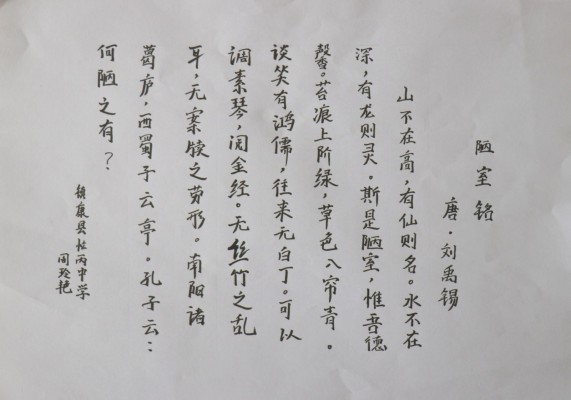 陋室铭
唐·刘禹锡
山不在高，有仙则名。水不在
深，有龙则灵。斯是陋室，惟吾德
馨。苔痕上阶绿，草色入帘青。
谈笑有鸿儒，往来无白丁。可以
调素琴，阅金经。无丝竹之乱
耳，无案牍之劳形。南阳诸
葛庐，西蜀子云亭。孔子云：
何陋之有？
镇康县忙丙中学
周玲艳